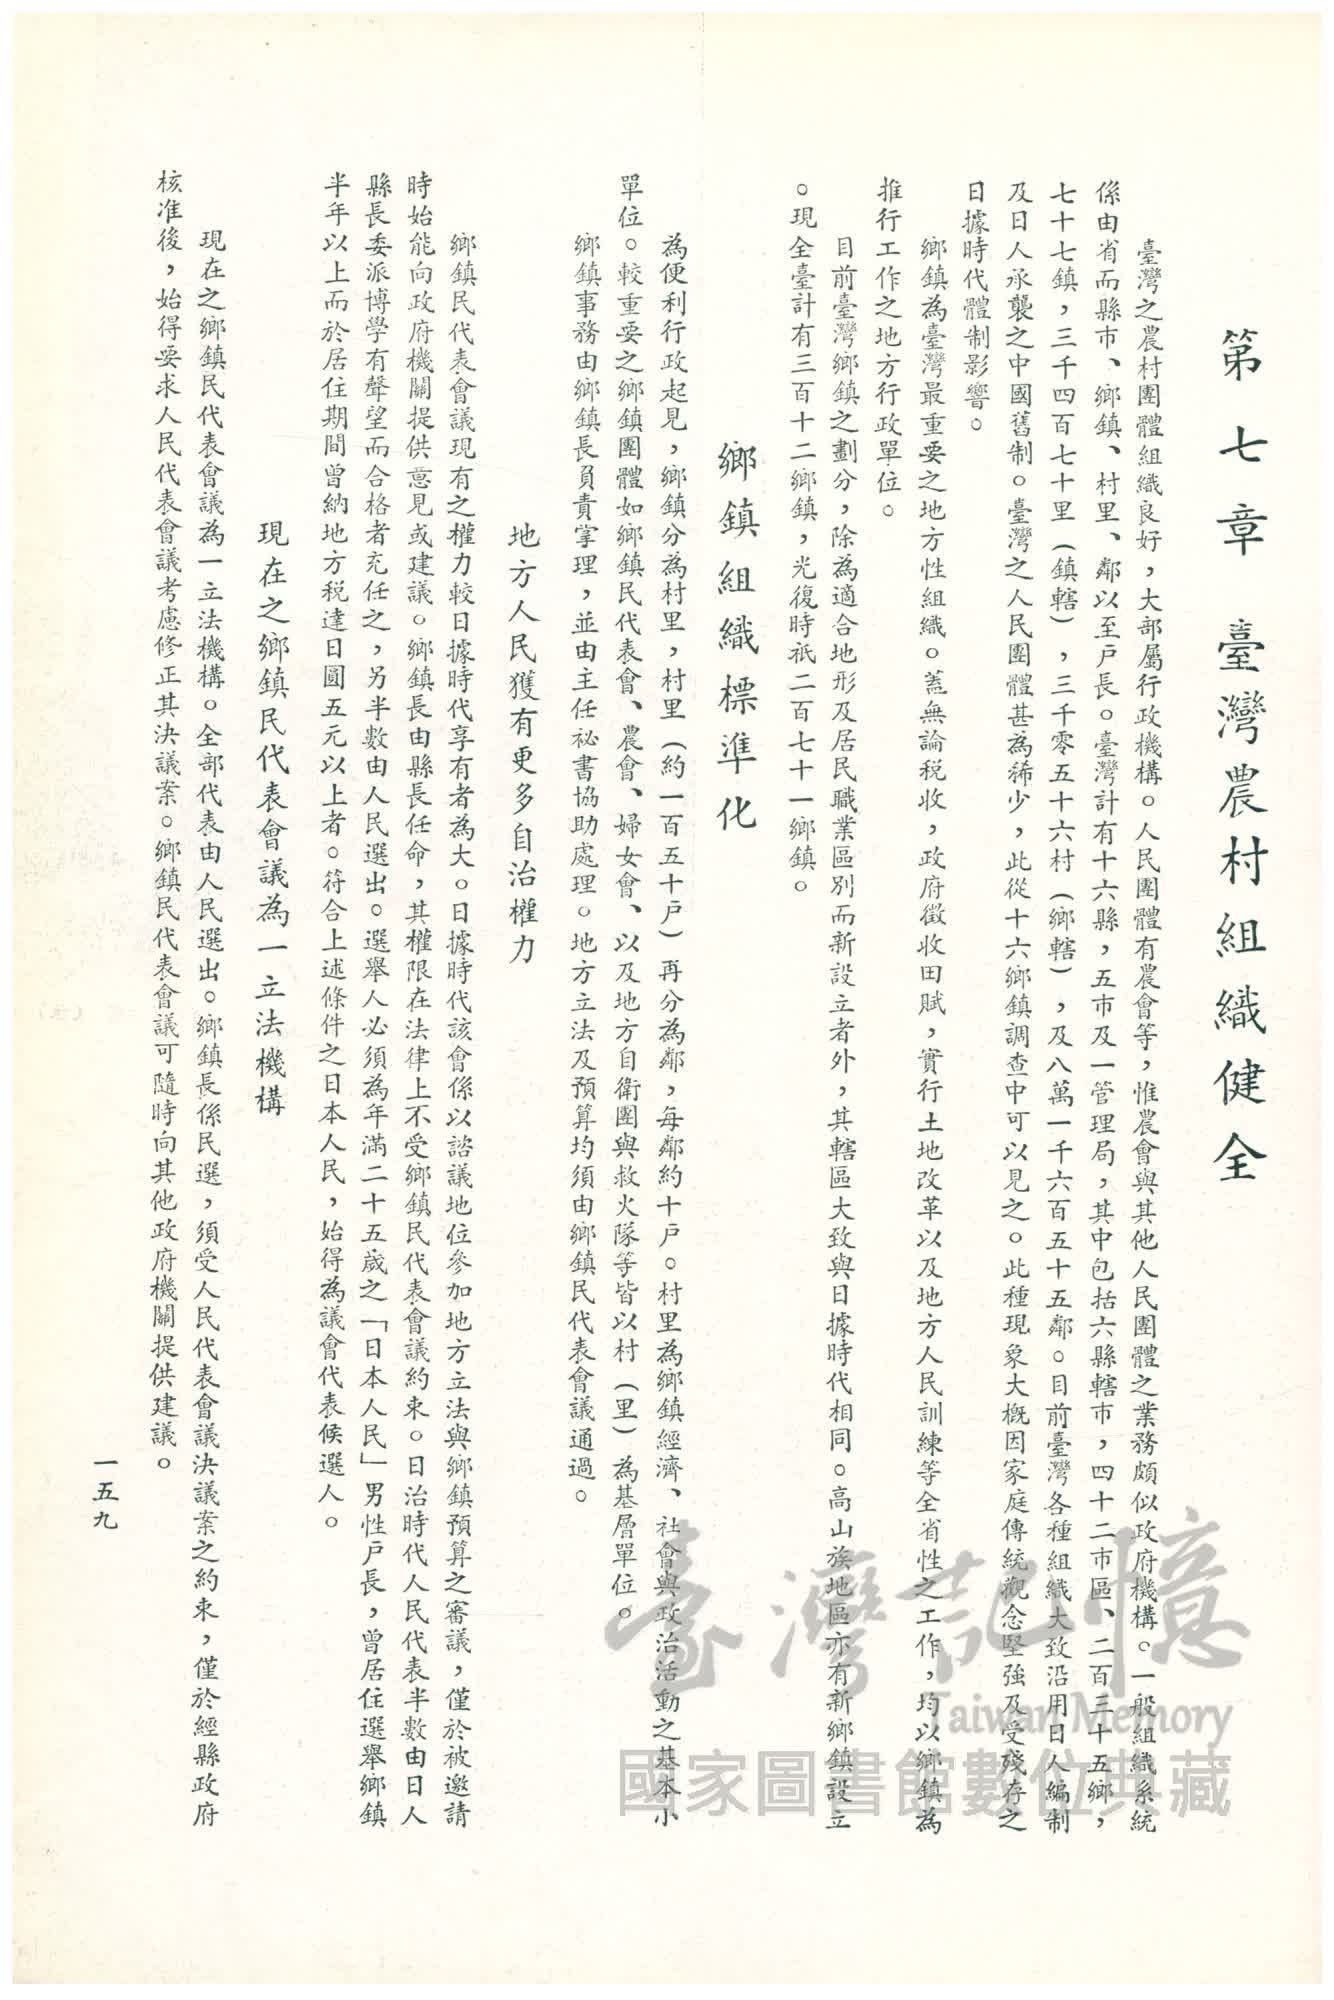 第七章　臺灣農村組織健全
臺灣之農村團體組織良好，大部屬行政機構。人民團體有農會等，惟農會與其他人民團體之業務頗似政府機構。一般組織系統
係由省而縣市、鄉鎮、村里、鄰以至戶長。臺灣計有十六縣，五市及一管理局，其中包括六縣轄市，四十二市區、二百三十五鄉，
七十七鎮，三千四百七十里（鎮轄），三千零五十六村（鄉轄），及八萬一千六百五十五鄰。目前臺灣各種組織大致沿用日人編制
及日人承襲之中國舊制。臺灣之人民團體甚為稀少，此從十六鄉鎮調查中可以見之。此種現象大概因家庭傳統觀念堅強及受殘存之
日據時代體制影響。
鄉鎮為臺灣最重要之地方性組織。蓋無論稅收，政府徵收田賦，實行土地改革以及地方人民訓練等全省性之工作，均以鄉鎮為
推行工作之地方行政單位。
目前臺灣鄉鎮之劃分，除為適合地形及居民職業區別而新設立者外，其轄區大致與日據時代相同。高山族地區亦有新鄉鎮設立
。現全臺計有三百十二鄉鎮，光復時祇二百七十一鄉鎮。
鄉鎮組織標準化
為便利行政起見，鄉鎮分為村里，村里（約一百五十戶）再分為鄰，每鄰約十戶。村里為鄉鎮經濟、社會與政治活動之基本小
單位。較重要之鄉鎮團體如鄉鎮民代表會、農會、婦女會、以及地方自衛團與救火隊等皆以村（里）為基層單位。
鄉鎮事務由鄉鎮長負責掌理，並由主任祕書協助處理。地方立法及預算均須由鄉鎮民代表會議通過。
地方人民獲有更多自治權力
鄉鎮民代表會議現有之權力較日據時代享有者為大。日據時代該會係以諮議地位參加地方立法與鄉鎮預算之審議，僅於被邀請
時始能向政府機關提供意見或建議。鄉鎮長由縣長任命，其權限在法律上不受鄉鎮民代表會議約束。日治時代人民代表半數由日人
縣長委派博學有聲望而合格者充任之，另半數由人民選出。選舉人必須為年滿二十五歲之「日本人民」男性戶長，曾居住選舉鄉鎮
半年以上而於居住期間曾納地方稅達日圓五元以上者。符合上述條件之日本人民，始得為議會代表候選人。
現在之鄉鎮民代表會議為一立法機構
現在之鄉鎮民代表會議為一立法機構。全部代表由人民選出。鄉鎮長係民選，須受人民代表會議決議案之約束，僅於經縣政府
核准後，始得要求人民代表會議考慮修正其決議案。鄉鎮民代表會議可隨時向其他政府機關提供建議。
一五九
臺灣記憶
Taiwan Memory
國家圖書館數位典藏